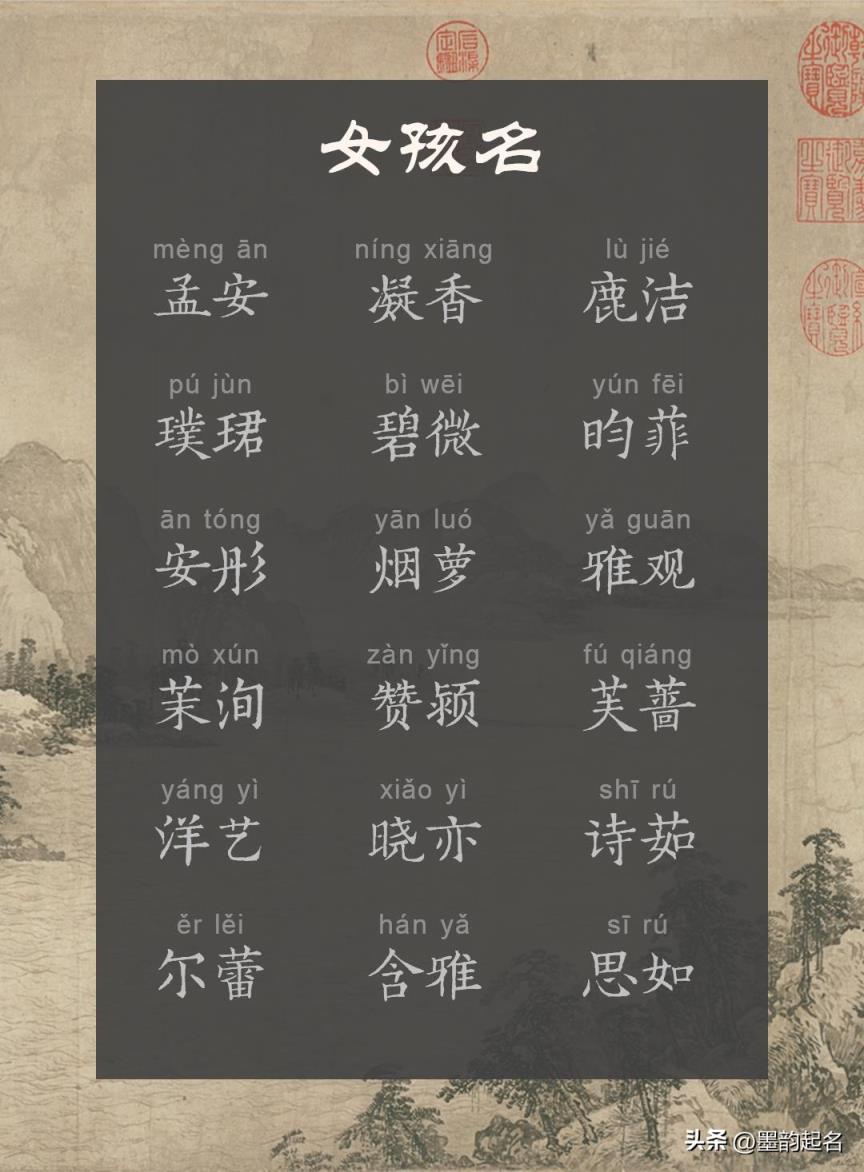 女孩名
mèng ān níng xiāng lù jié
孟安 凝香 鹿洁
pú jùn bì wēi yún fēi
璞珺 碧微 昀菲
ān tóng yān luó yǎ guān
安彤 烟萝 雅观
mò xún zàn yǐng fú qiáng
茉洵 赞颖 芙蔷
yáng yì xiǎo yì shī rú
洋艺 晓亦 诗茹
ěr lěi hán yǎ sī rú
尔蕾 含雅 思如
头条 @墨韵起名